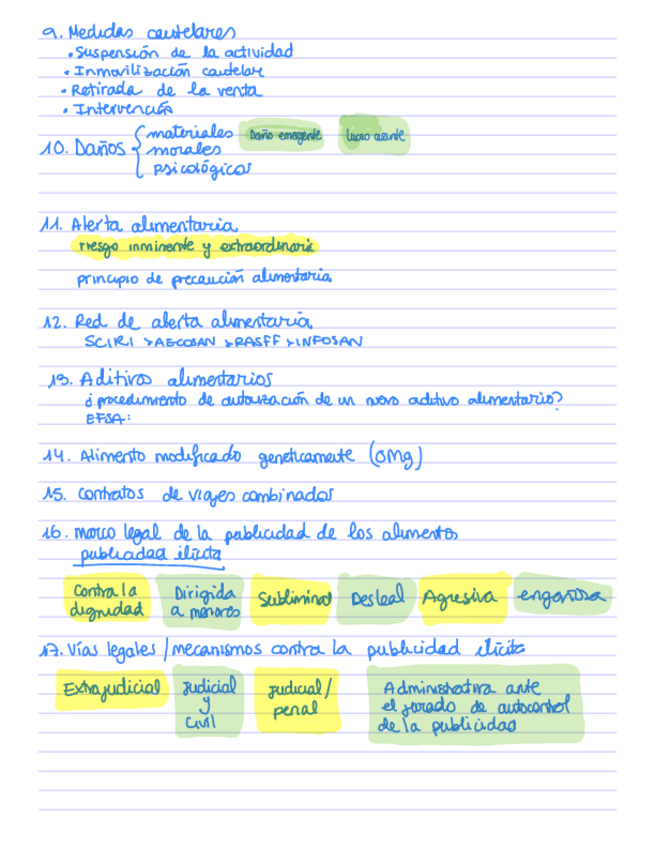 9. Medidas cautelares
• Suspensión de la actividad
• Inmovilización cautelar
• Retirada de la venta
• Intervención
10. Daños { materiales Daño emergente Lucro cesante
morales
psicológicos
11. Alerta alimentaria
riesgo inminente y extraordinario
principio de precaución alimentaria
12. Red de alerta alimentaria
SCIRI > AECOSAN > RASFF > INFOSAN
13. Aditivos alimentarios
¿procedimiento de autorización de un nuevo aditivo alimentario?
EFSA:
14. Alimento modificado genéticamente (OMG)
15. Contratos de viajes combinados
16. Marco legal de la publicidad de los alimentos
publicidad ilícita
Contra la dignidad Dirigida a menores Subliminal Desleal Agresiva engañosa
17. Vías legales / mecanismos contra la publicidad ilícita
Extrajudicial Judicial y Civil Judicial / penal Administrativa ante el jurado de autocontrol de la publicidad